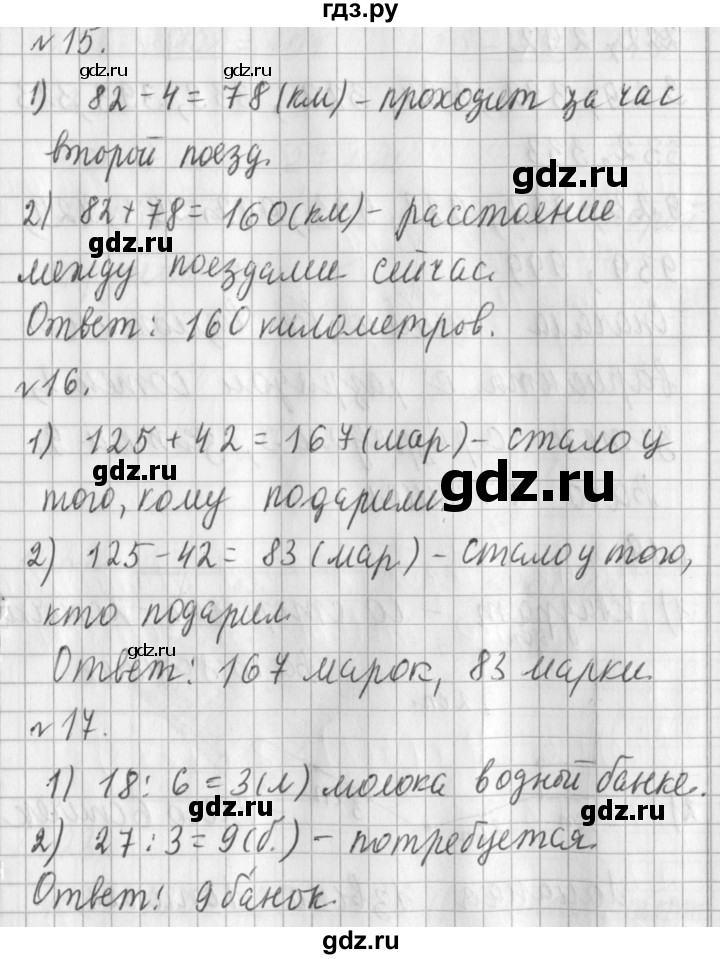 гдз.ру
№15.
gdz.ru gdz.ru
1) 82 - 4 = 78 (км) - проходит за час
второй поезд.
gdz.ru
2) 82 + 78 = 160 (км) - расстояние
gdz.ru
между поездами сейчас.
Ответ: 160 километров.
№16. gdz.ru
1) 125 + 42 = 167 (мар) - стало у
gdz.ru gdz.ru
того, кому подарили.
2) 125 - 42 = 83 (мар) - стало у того,
кто подарил.
gdz.ru
Ответ: 167 марок, 83 марки.
№17. gdz.ru
1) 18 : 6 = 3 (л) молока в одный банке.
gdz.ru gdz.ru
2) 27 : 3 = 9 (б.) - потребуется.
gdz.ru
Ответ: 9 банок.
gdz.ru